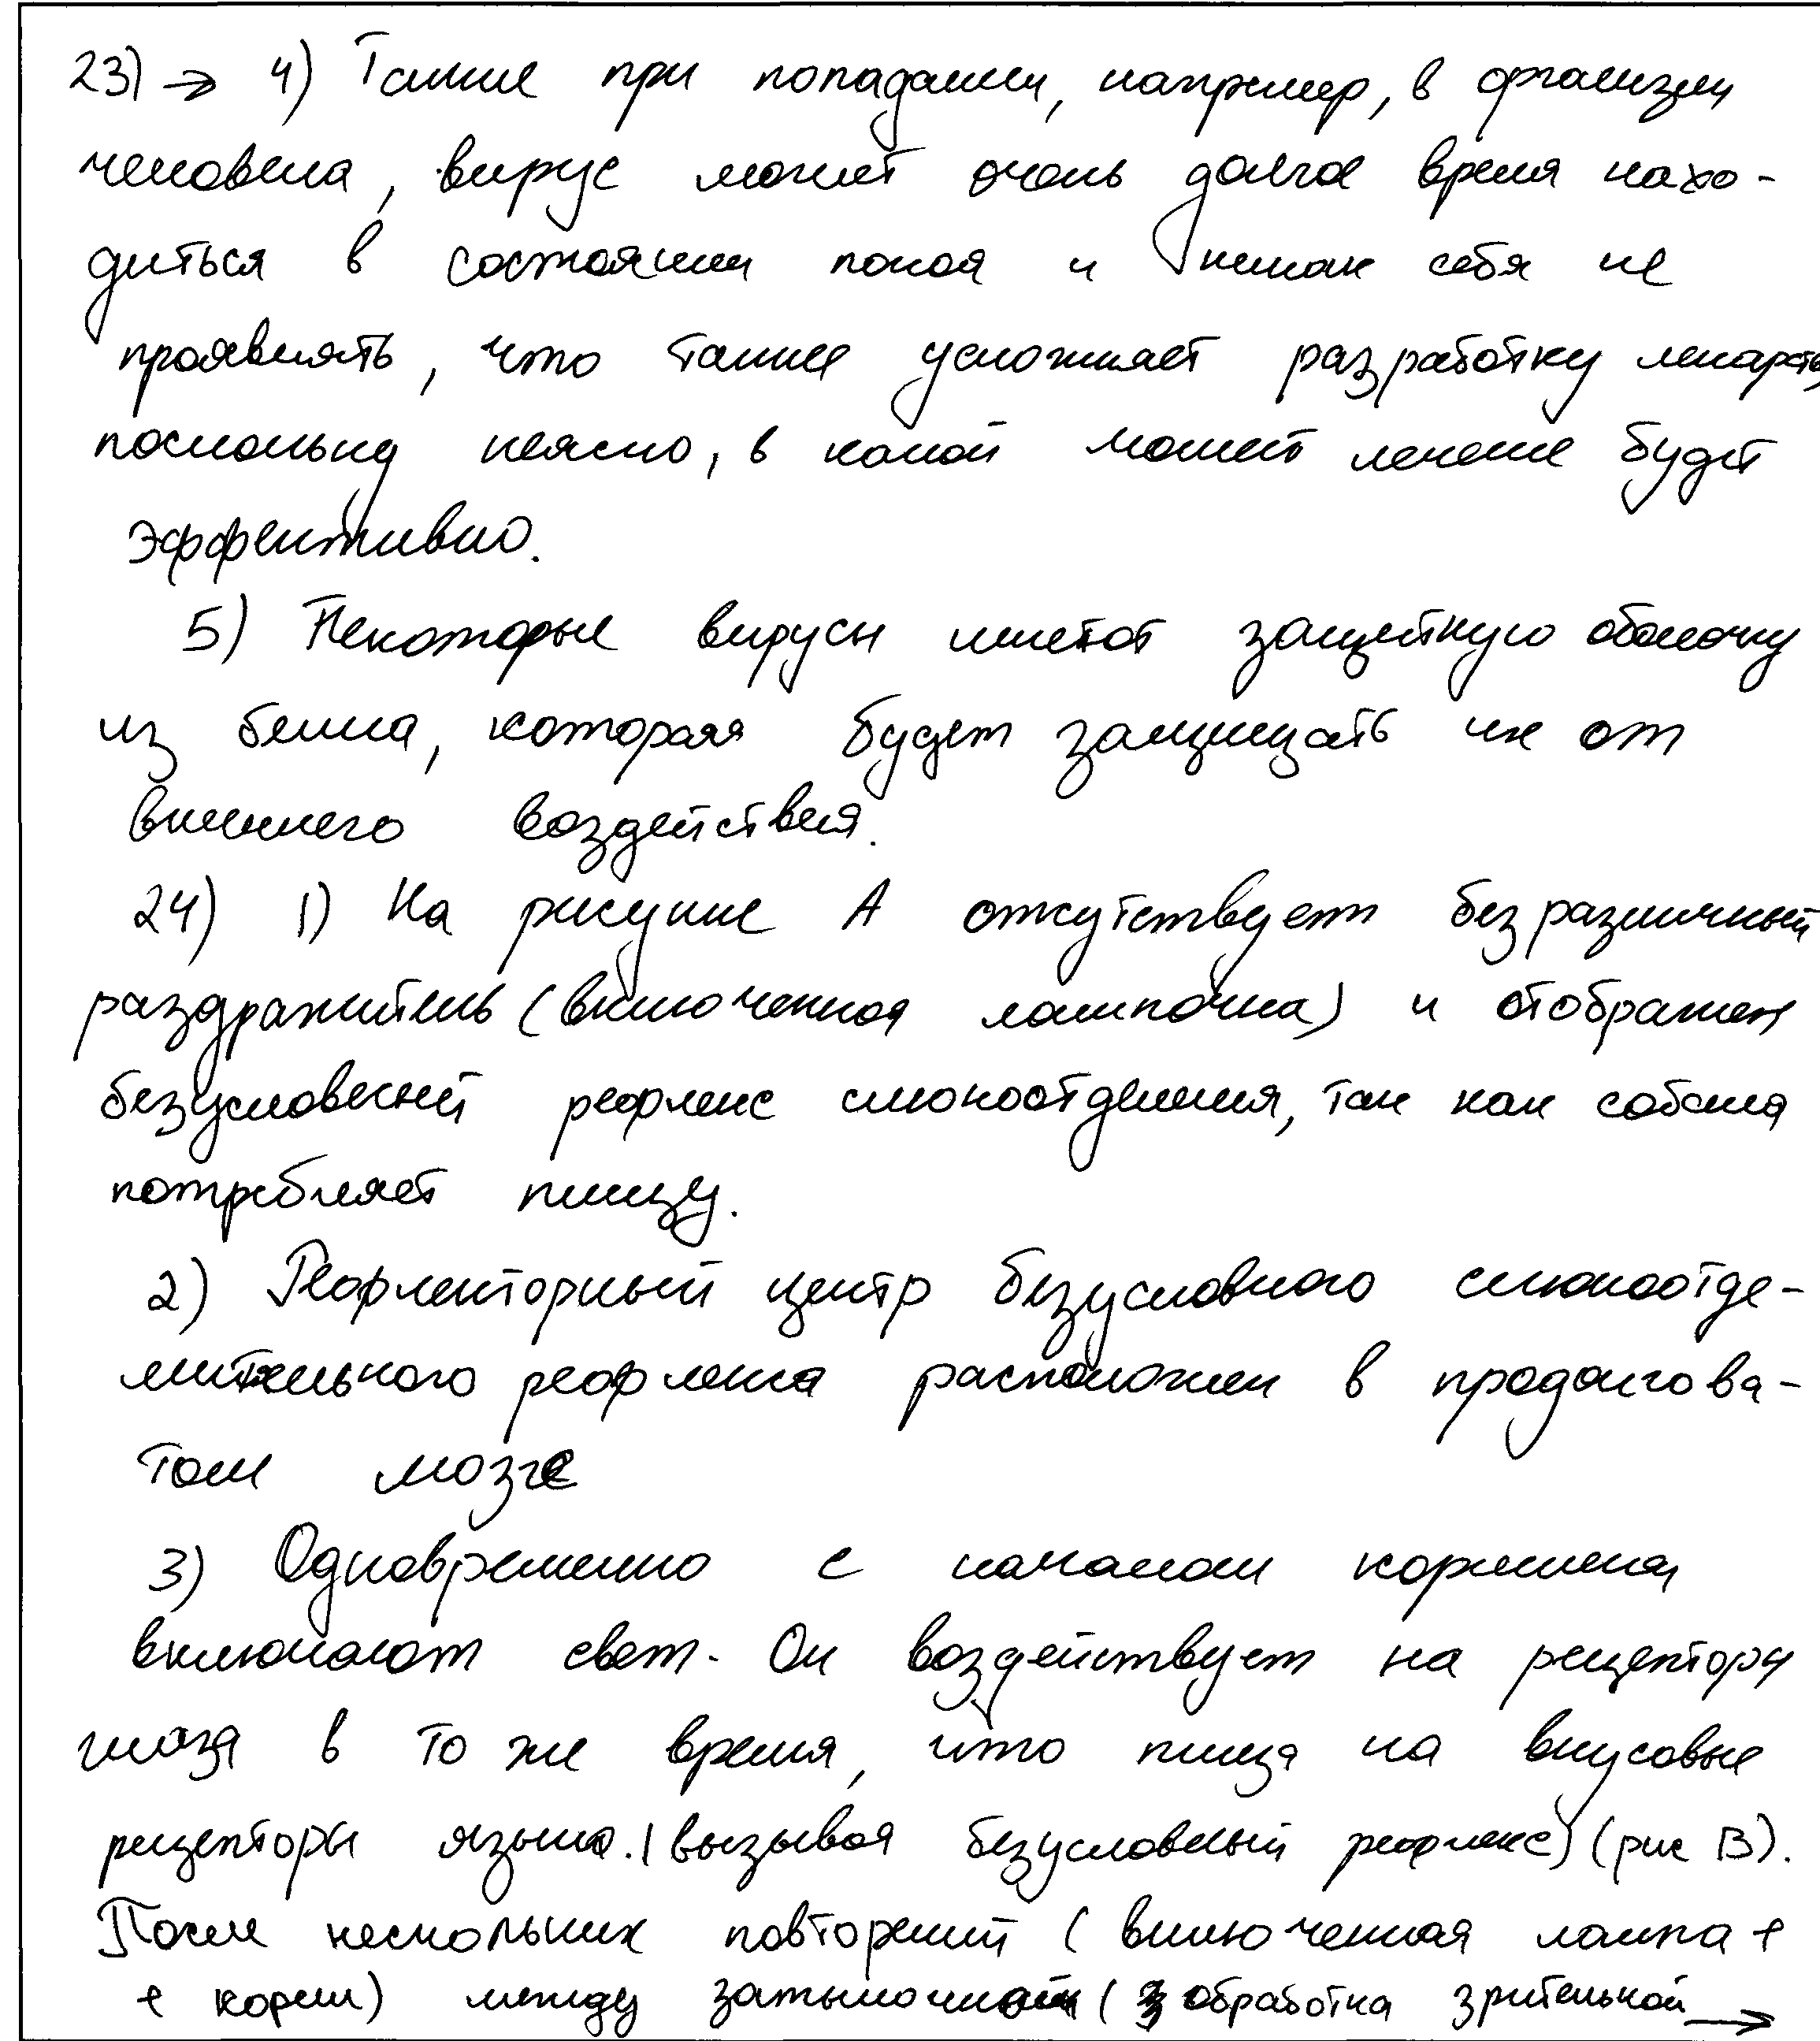 23) → 4) Также при попадании, например, в организм
человека, вирус может очень долгое время нахо-
диться в состоянии покоя и никак себя не
проявлять, что также усложняет разработку лекарств,
поскольку неясно, в какой момент лечение будет
эффективно.
5) Некоторые вирусы имеют защитную оболочку
из белка, которая будет защищать их от
внешнего воздействия.
24) 1) На рисунке А отсутствует безразличный
раздражитель (включенная лампочка) и отображен
безусловный рефлекс слюноотделения, так как собака
потребляет пищу.
2) Рефлекторный центр безусловного слюноотде-
лительного рефлекса расположен в продолгова-
том мозге
3) Одновременно с началом кормления
включают свет. Он воздействует на рецепторы
глаза в то же время, что пища на вкусовые
рецепторы языка. (вызывая безусловный рефлекс) (рис В).
После нескольких повторений (включенная лампа +
+ корм) между затылочной (обработка зрительной →